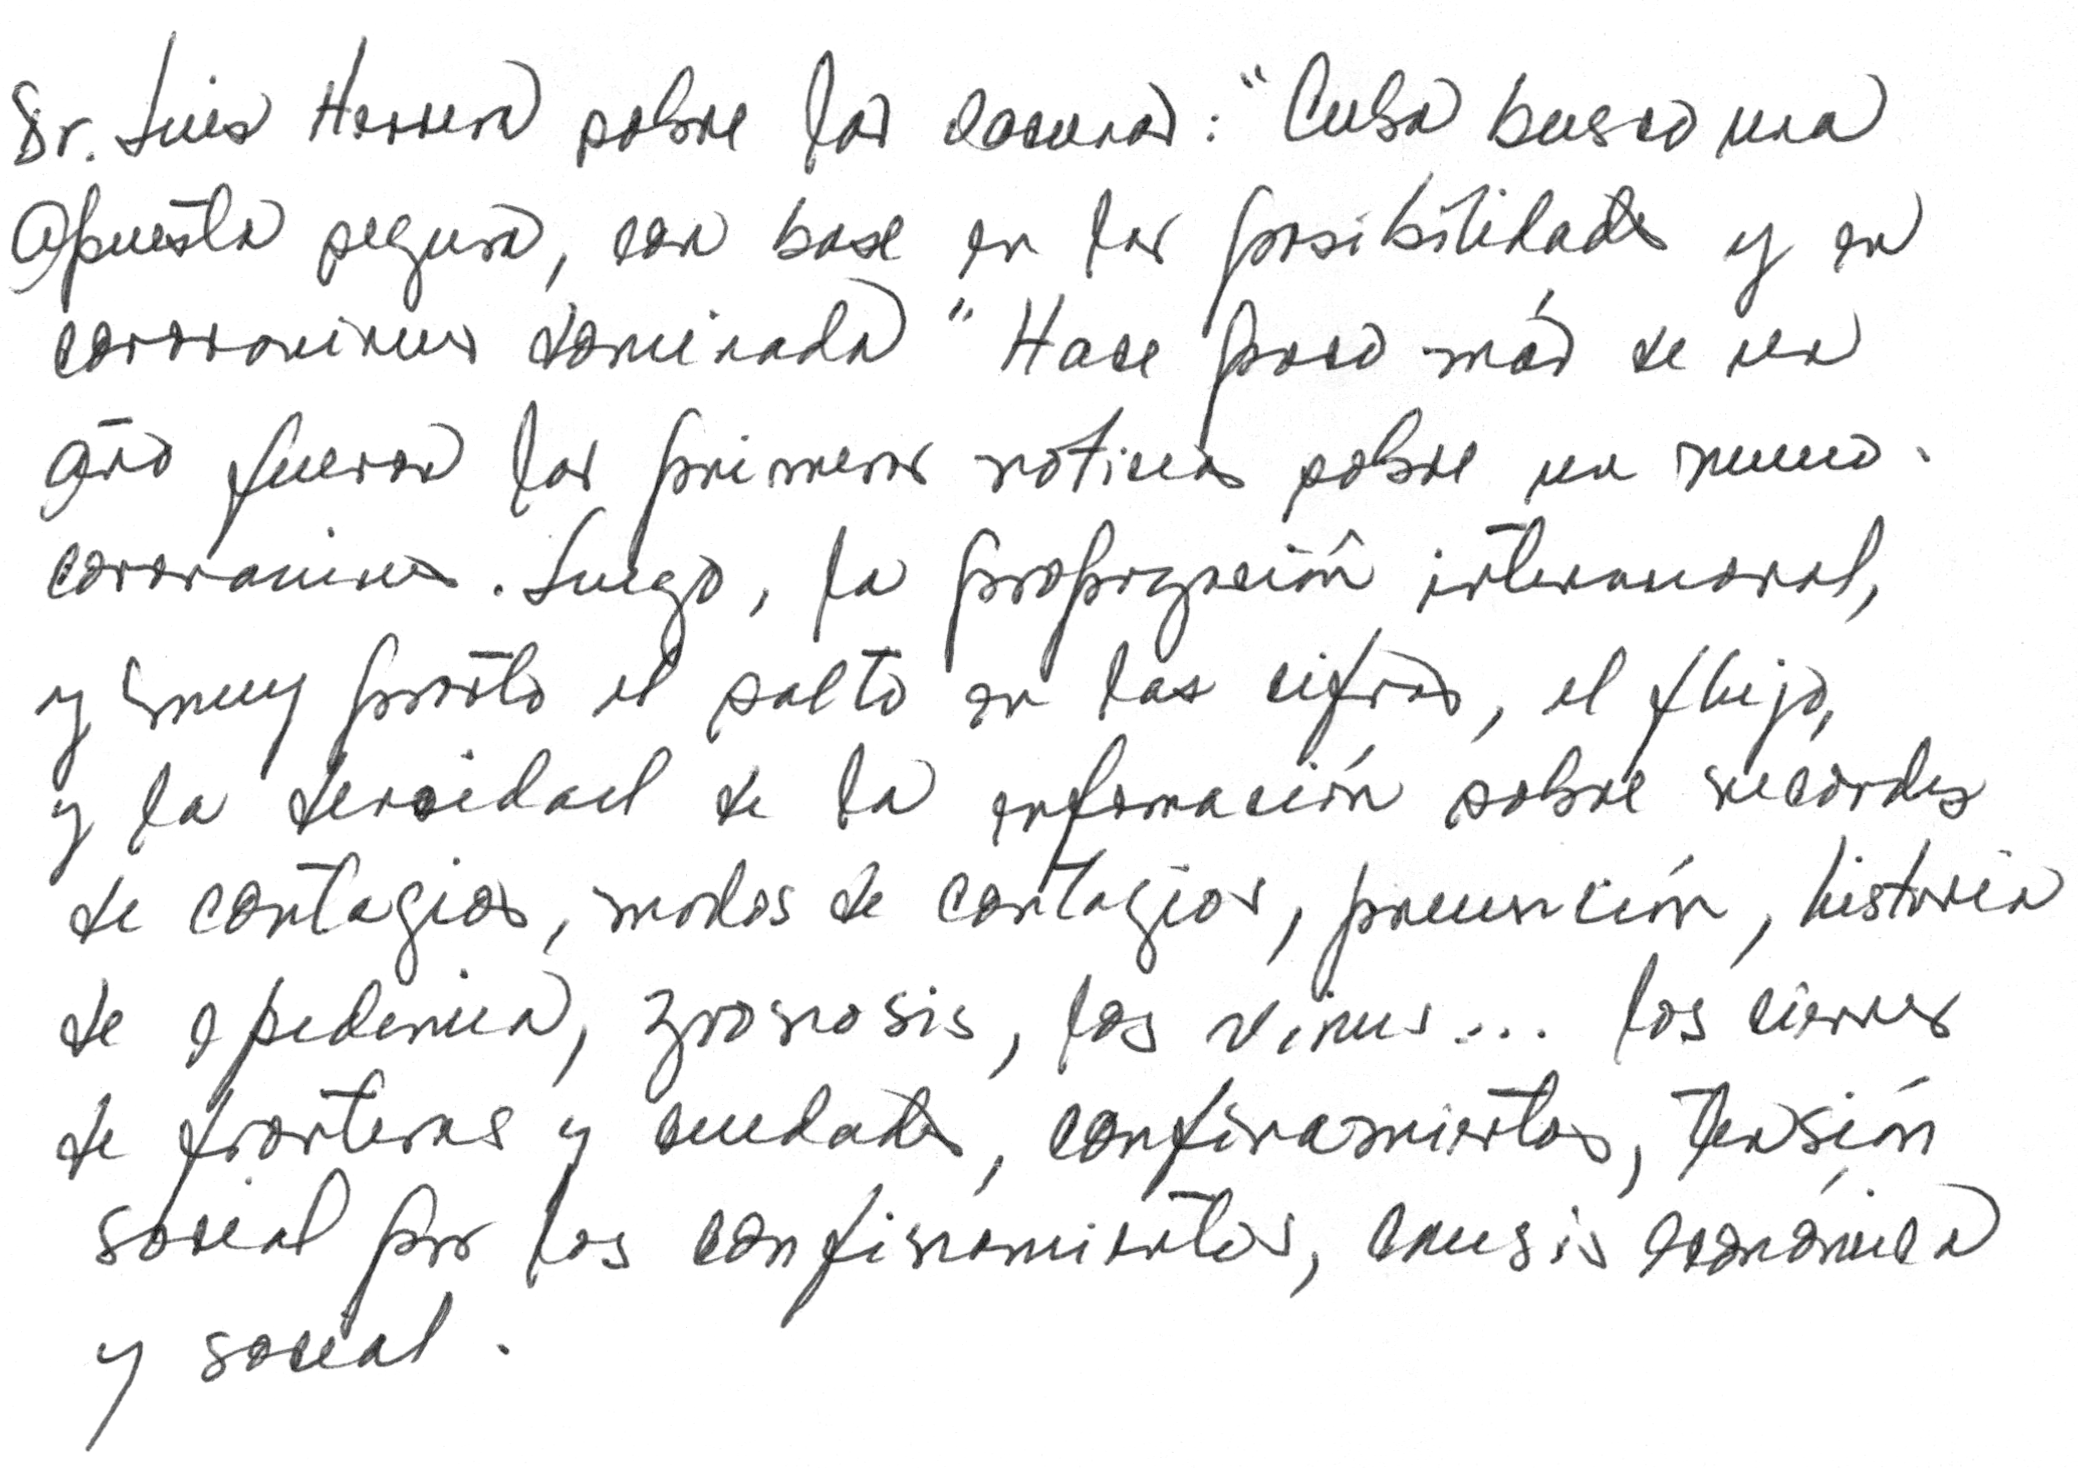 Dr. Luis Herrera sobre las vacunas: "Cuba busco una
apuesta segura, con base en las posibilidades y en
coronavirus dominada" Hace poco más de un
año fueron las primeras noticias sobre un nuevo
coronavirus. Luego, la propagación internacional,
y muy pronto el salto en las cifras, el flujo,
y la densidad de la información sobre records
de contagios, modos de contagios, prevención, historia
de epidemia, zoonosis, los virus... los cierres
de fronteras y ciudades, confinamientos, tensión
social por los confinamientos, crisis económica
y social.